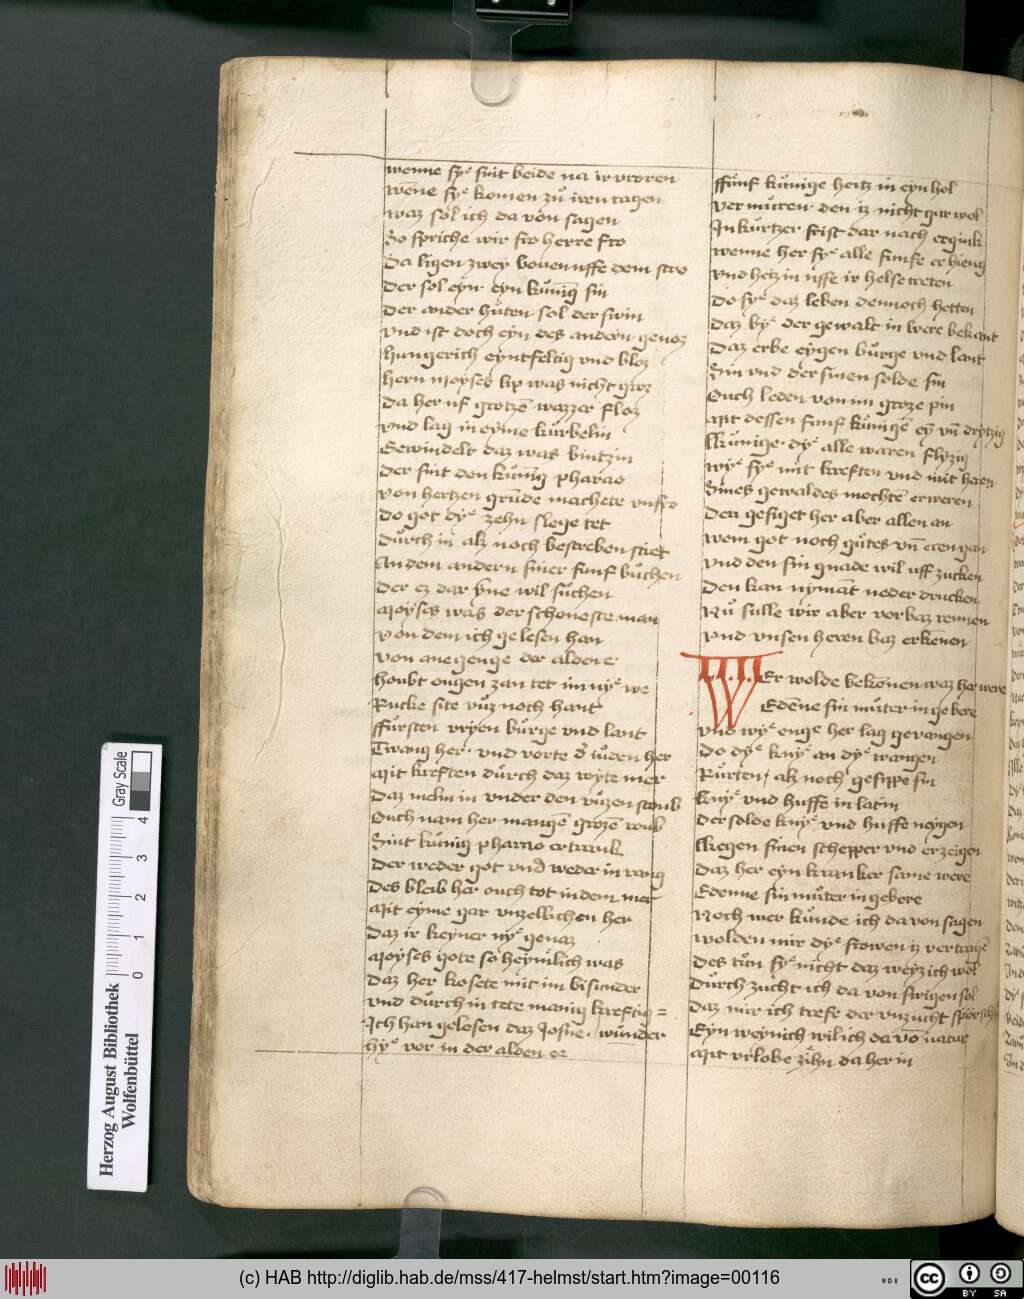 wenne syͤ sint beide na ir vroren
wēne syͤ komen zuͦ iren tagen
waz sol ich da von sagen
So spriche wir fro herre fro
Da ligen zwey boven uffe dem stro
Der sol eyn eyn kuͤnig sin
Der ander huͤten sol der swin
vnd ist doch eyn des andern genoz
hungerich eyntfeltig vnd bloz
hern moyses lip was nicht groz
Da her uf grotzē wazzer floz
vnd lag in eyme kuͤrbelin
Gewindelt daz was bintzin
Der sint den kuͤnig pharao
von hertzen grūde machete vnfro
do got dyͤ zehn slege tet
duͤrch in alz noch bestreben stet
An dem andern siner funf buͤchen
Der ez dar yͤne wil suͤchen
Moyses was der schoneste man
von dem ich gelesen han
von anegenge der alden e
houbt ougen zan tet im nyͤ we
Rucke site vuͤz noch hant
ffuͤrsten vryen buͤrge vnd lant
Twang her vnd vorte d' iuden her
Mit kreften duͤrch daz rote mer
Daz melm in vnder den vuͤzen stoub
Ouch nam her mangē grozē roub
Sint kuͤnig pharao ertrank
Der weder got vnd weder in rang
Des bleib her ouch tot in dem mer
Mit eyme gar vnzellichen her
Daz ir keyner nyͤ genaz
Moyses gote so heymlich was
Daz her kosete mit im bisunder
vnd duͤrch in tete manig kreftig =
Ich han gelesen daz Josue wuͤnder
hyͤ vor in der alden ee
ffuͤnf kuͤnige heitz in eyn hol
vermuͤren den iz nicht gar wol
In kuͤrtzer frist dar nach ergink
wenne her syͤ alle funfe er hieng
vnd heiz in uffe ir helse treten
Do syͤ daz leben dennoch hetten
Daz byͤ der gewalt in were bekant
Daz erbe eygen buͤrge vnd lant
Sin vnd der sinen solde sin
Ouch leden von im groze pin
Mit dessen funf kuͤnigē eyͤ vn̄ dryͤtzig
kuͤnige dyͤ alle waren flyzig
wyͤ syͤ mit kreften vnd mit heren
Sines gewaldes mochtē erweren
Den gesiget her aber allen an
wem got noch guͤtes vn̄ eren gan
vnd den sin gnade wil uff zucken
Den kan nymāt neder drucken
Nuͦ sulle wir aber vorbaz rennen
vnd vnsen heren baz erkēnen
WEr wolde bekēnen waz her were
Edēne sin muͤter in gebere
vnd wyͤ enge her lag gevangen
Do dyͤ knyͤ an dyͤ wangen
Ruͤrten / alz noch gesippe sin
knyͤ vnd huffe in latin
Der solde knyͤ vnd huffe neygen
kegen sinen schepper vnd erzeigen
Daz her eyn kranker same were
Edenne sin muͤter in gebere
Noch mer kuͤnde ich da von sagen
wolden mir dyͤ frowen iz vertragē
Des tuͤn syͤ nicht daz weyz ich wol
Duͤrch zucht ich da von swigen sol
Daz mir ich trefe der vnzucht
Eyn weynich wil ich da vō natur
Mit vrlobe zihn da her in
Gray Scale
0 1 2 3 4
Herzog August Bibliothek
Wolfenbüttel
(c) HAB http://diglib.hab.de/mss/417-helmst/start.htm?image=00116
WDB
cc BY SA